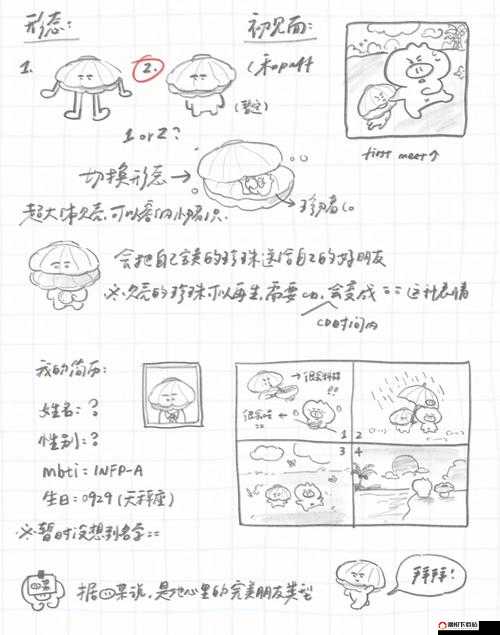 形态:
初见面:
1.
2.
(和
(暂定)
1 or 2?
first meet↑
切换形态→
→珍珠
超大体贝壳,可以
会把自己宝贵的珍珠送给自己的好朋友
※贝壳的珍珠可以再生,需要cd,会变成 == 这种表情
CD时间内
我的简历:
姓名:?
性别:?
mbti: INFP-A
生日:0929(天秤座)
※暂时没想到名字==
1
2
3
4
据四菜说,是他心里的完美朋友类型
拜拜!